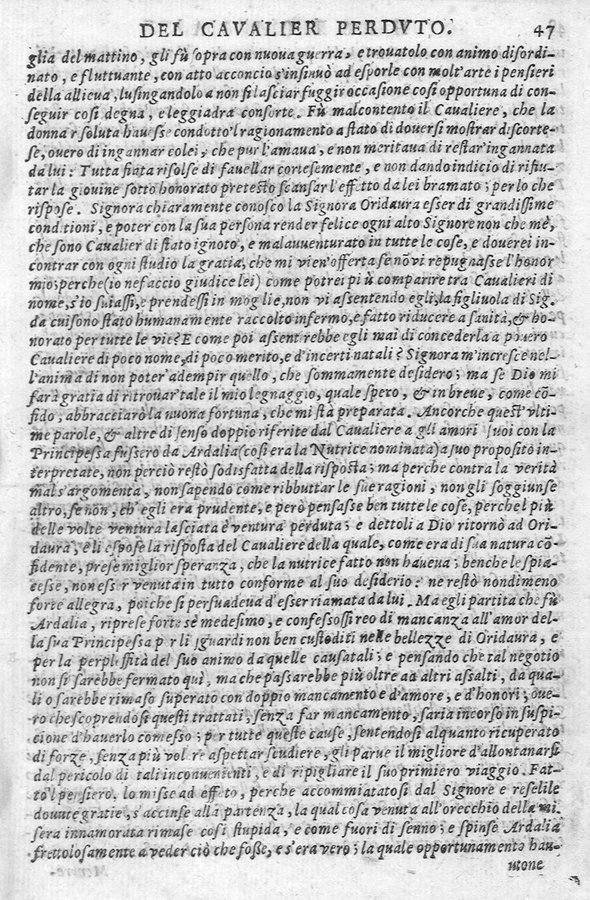 DEL CAVALIER PERDVTO. 47
glia del mattino, gli fù sopra con nuova guerra, e trouatolo con animo disordi-
nato, e fluttuante, con atto acconcio s'insinuò ad esporle con molt'arte i pensieri
della allieua, lusingandolo a non si lasciar fuggir occasione così opportuna di con-
seguir così degna, e leggiadra consorte. Fù malcontento il Caualiere, che la
donna risoluta hauesse condotto'l ragionamento a stato di douersi mostrar discorte-
se, ouero di ingannar colei, che pur l'amaua, e non meritaua di restar ingannata
da lui: Tutta fiata risolse di fauellar cortesemente, e non dando indicio di rifiu-
tar la giouine sotto honorato pretesto scansar l'effetto da lei bramato; per lo che
rispose. Signora chiaramente conosco la Signora Oridaura esser di grandissime
conditioni, e poter con la sua persona render felice ogni alto Signore non che mè,
che sono Caualier di stato ignoto, e malauuenturato in tutte le cose, e douerei in-
contrar con ogni studio la gratia, che mi vien'offerta se nō vi repugnasse l'honor
mio; perche (io ne faccio giudice lei) come potrei più comparire tra Caualieri di
nome, s'io suiassi, e prendessi in moglie, non vi assentendo egli, la figliuola di Sig.
da cui sono stato humanamente raccolto infermo, e fatto riducere a sanità, & ho-
norato per tutte le vie? E come poi assentirebbe egli mai di concederla a pouero
Caualiere di poco nome, di poco merito, e d'incerti natali? Signora m'incresce nel-
l'anima di non poter' adempir quello, che sommamente desidero; ma se Dio mi
farà gratia di ritrouar tale il mio legnaggio, quale spero, & in breue, come cō-
fido, abbracciarò la nuoua fortuna, che mi stà preparata. Ancorche quest' vlti-
me parole, & altre di senso doppio riferite dal Caualiere a gli amori suoi con la
Principessa fussero da Ardalia (così era la Nutrice nominata) a suo proposito in-
terpretate, non perciò restò sodisfatta della risposta; ma perche contra la verità
mal s'argomenta, non sapendo come ribbuttar le sue ragioni, non gli soggiunse
altro, se nōn, ch' egli era prudente, e però pensasse ben tutte le cose, perche l più
delle volte ventura lasciata è ventura perduta; e dettoli a Dio ritornò ad Ori-
daura, e li espose la risposta del Caualiere della quale, come era di sua natura cō-
fidente, prese miglior speranza, che la nutrice fatto non haueua; benche le spia-
cesse, non esser venuta in tutto conforme al suo desiderio: ne restò nondimeno
forte allegra, poiche si persuadeua d'esser riamata da lui. Ma egli partita che fù
Ardalia, riprese forte se medesimo, e confessossi reo di mancanza all'amor del-
la sua Principessa per li sguardi non ben custoditi nelle bellezze di Oridaura, e
per la perplessità del suo animo da quelle causatali; e pensando che tal negotio
non si sarebbe fermato quì, ma che passarebbe più oltre ad altri assalti, da qua-
li o sarebbe rimaso superato con doppio mancamento e d'amore, e d'honori; oue-
ro che scoprendosi questi trattati, senza far mancamento, saria incorso in suspi-
cione d'hauerlo comesso; per tutte queste cause, sentendosi alquanto ricuperato
di forze, senza più volere aspettar scudiere, gli parue il migliore d'allontanarsi
dal pericolo di tali inconuenienti, e di ripigliare il suo primiero viaggio. Fat-
to'l pensiero, lo misse ad effeto, perche accommiatatosi dal Signore e reselile
douute gratie, s'accinse alla partenza, la qual cosa venuta all'orecchio della mi-
sera innamorata rimase così stupida, e come fuori di senno; e spinse Ardalia
frettolosamente a veder ciò che fosse, e s'era vero; la quale opportunamente hau-
utone